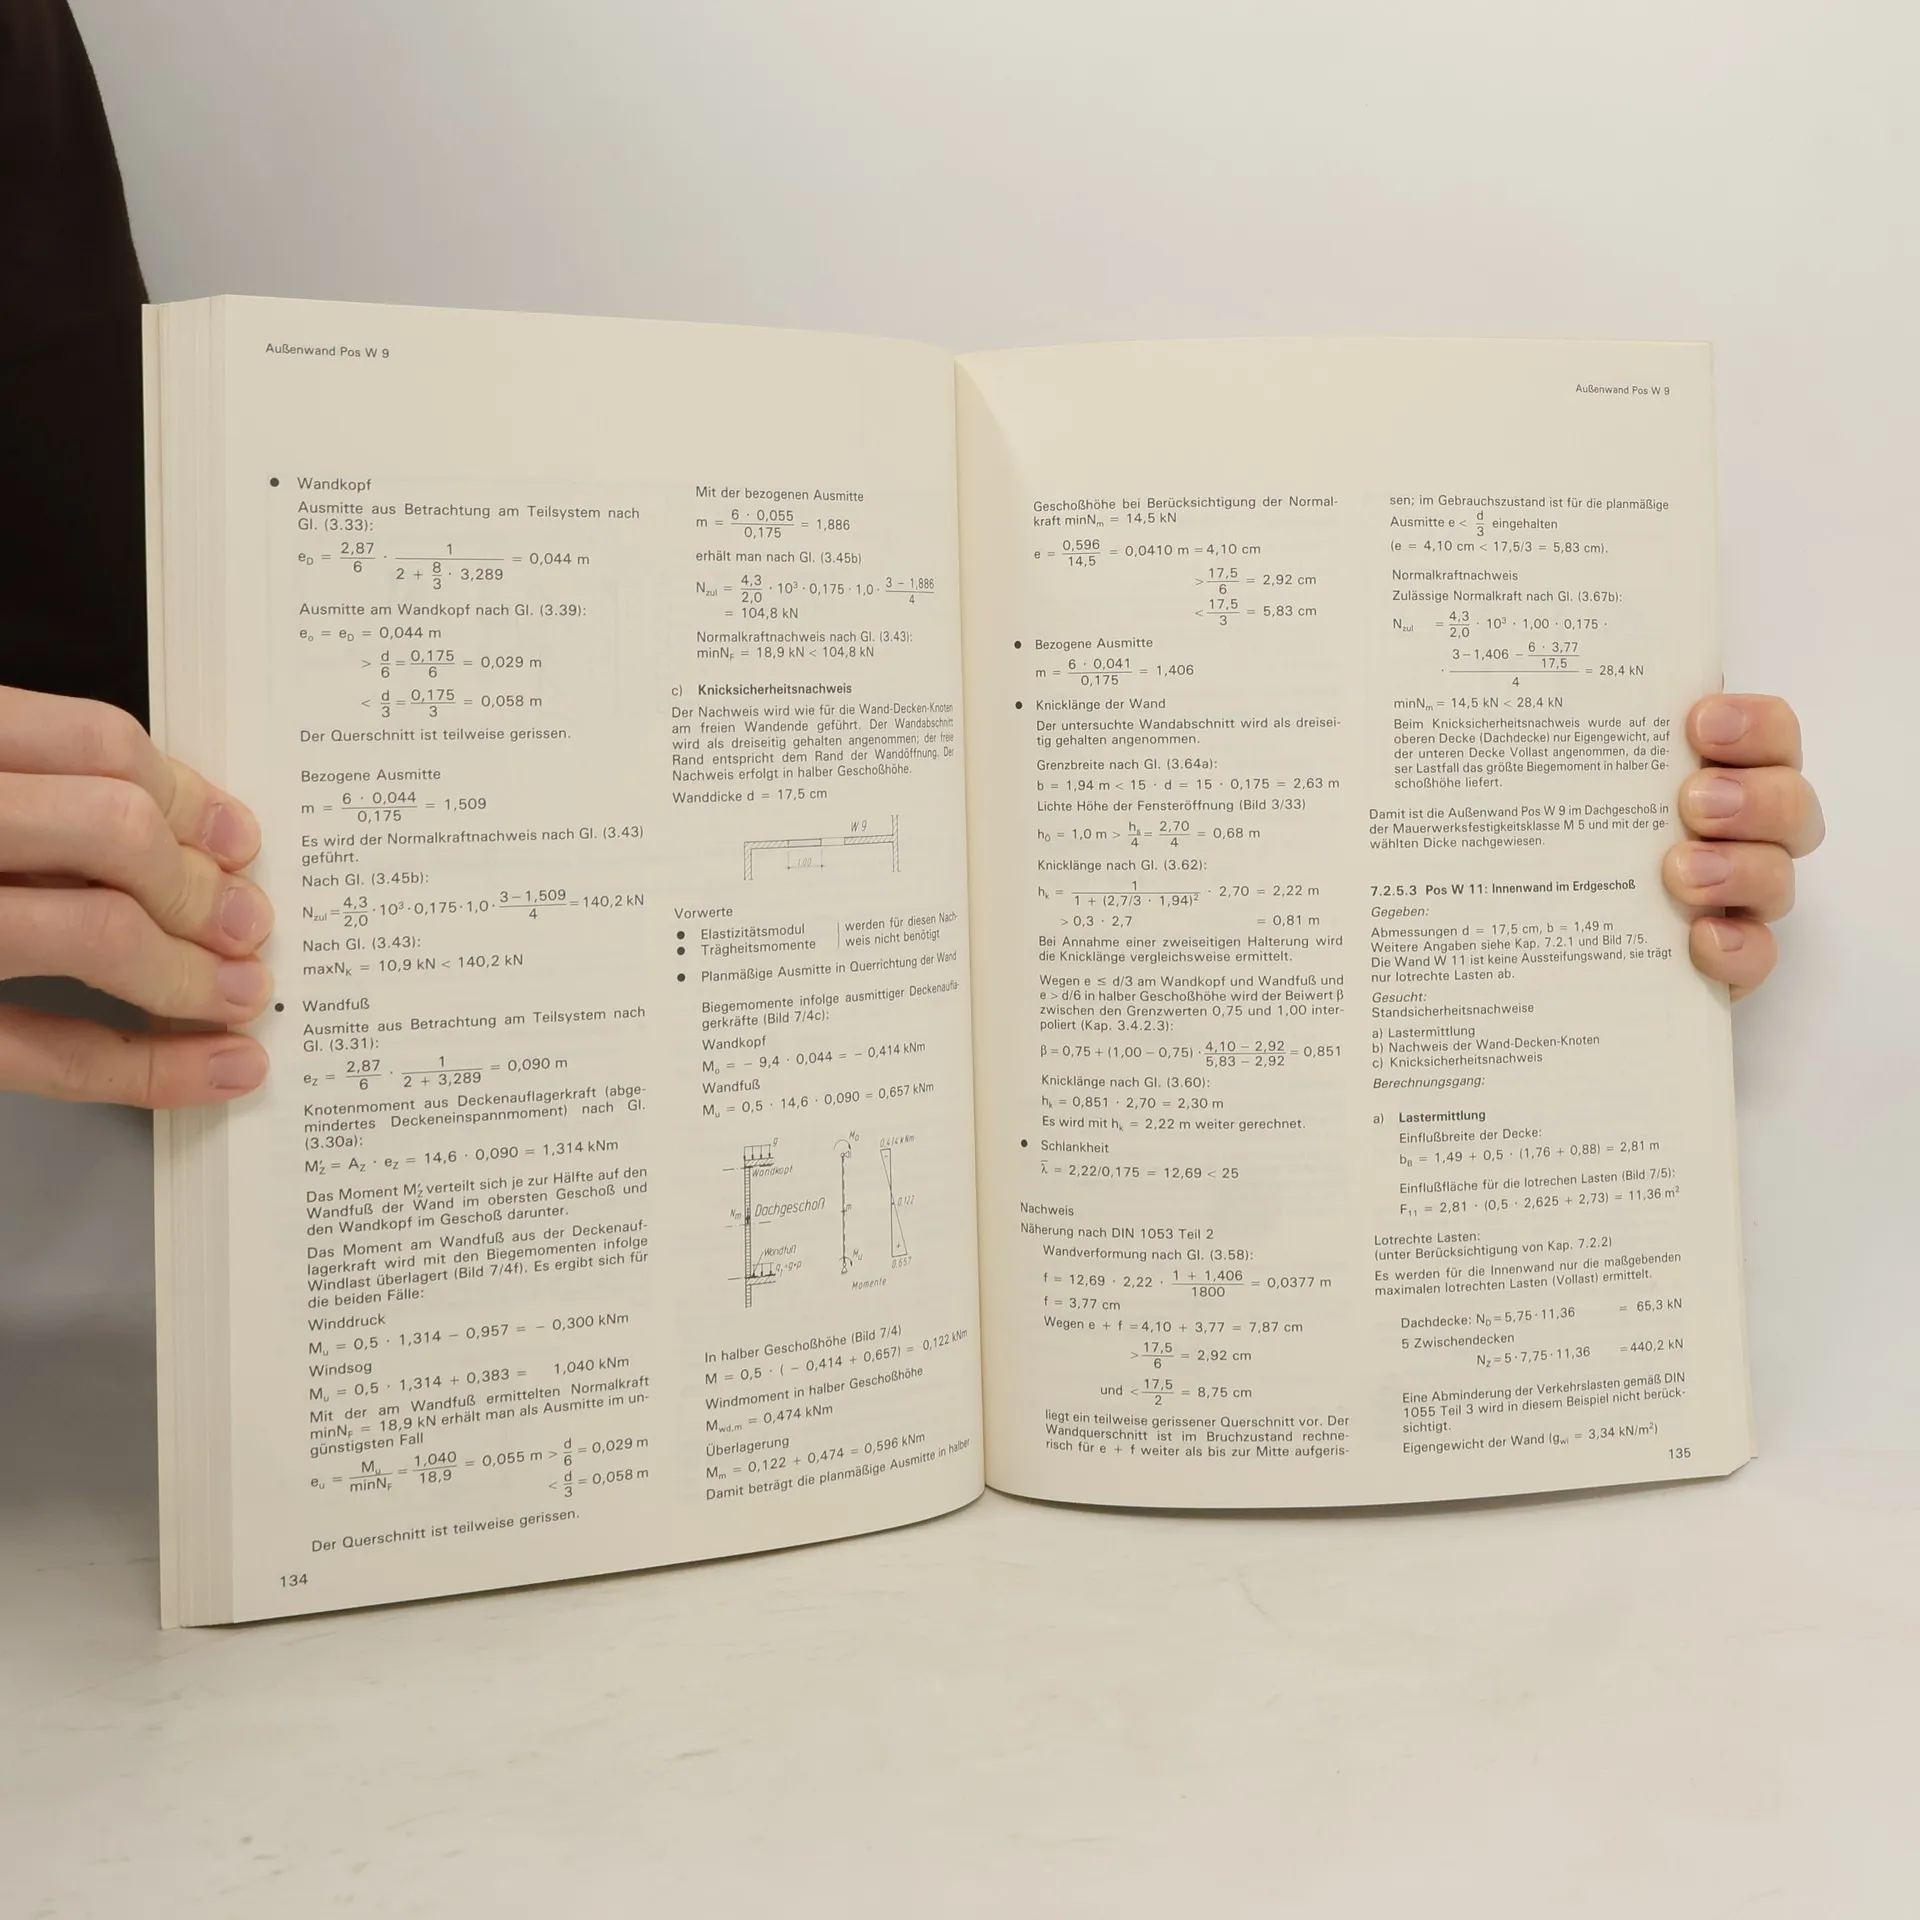 Außenwand Pos W 9
● Wandkopf
Ausmitte aus Betrachtung am Teilsystem nach
Gl. (3.33):
e_D = 2,87/6 · 1/(2 + 8/3 · 3,289) = 0,044 m
Ausmitte am Wandkopf nach Gl. (3.39):
e_o = e_D = 0,044 m
> d/6 = 0,175/6 = 0,029 m
< d/3 = 0,175/3 = 0,058 m
Der Querschnitt ist teilweise gerissen.
Bezogene Ausmitte
m = 6 · 0,044/0,175 = 1,509
Es wird der Normalkraftnachweis nach Gl. (3.43)
geführt.
Nach Gl. (3.45b):
N_zul = 4,3/2,0 · 10³ · 0,175 · 1,0 · (3 – 1,509)/4 = 140,2 kN
Nach Gl. (3.43):
maxN_K = 10,9 kN < 140,2 kN
● Wandfuß
Ausmitte aus Betrachtung am Teilsystem nach
Gl. (3.31):
e_Z = 2,87/6 · 1/(2 + 3,289) = 0,090 m
Knotenmoment aus Deckenauflagerkraft (abge-
mindertes Deckeneinspannmoment) nach Gl.
(3.30a):
M'_Z = A_Z · e_Z = 14,6 · 0,090 = 1,314 kNm
Das Moment M'_Z verteilt sich je zur Hälfte auf den
Wandfuß der Wand im obersten Geschoß und
den Wandkopf im Geschoß darunter.
Das Moment am Wandfuß aus der Deckenauf-
lagerkraft wird mit den Biegemomenten infolge
Windlast überlagert (Bild 7/4f). Es ergibt sich für
die beiden Fälle:
Winddruck
M_u = 0,5 · 1,314 – 0,957 = – 0,300 kNm
Windsog
M_u = 0,5 · 1,314 + 0,383 = 1,040 kNm
Mit der am Wandfuß ermittelten Normalkraft
minN_F = 18,9 kN erhält man als Ausmitte im un-
günstigsten Fall
e_u = M_u/minN_F = 1,040/18,9 = 0,055 m > d/6 = 0,029 m
< d/3 = 0,058 m
Der Querschnitt ist teilweise gerissen.
134
Mit der bezogenen Ausmitte
m = 6 · 0,055/0,175 = 1,886
erhält man nach Gl. (3.45b)
N_zul = 4,3/2,0 · 10³ · 0,175 · 1,0 · (3 – 1,886)/4
= 104,8 kN
Normalkraftnachweis nach Gl. (3.43):
minN_F = 18,9 kN < 104,8 kN
c) Knicksicherheitsnachweis
Der Nachweis wird wie für die Wand-Decken-Knoten
am freien Wandende geführt. Der Wandabschnitt
wird als dreiseitig gehalten angenommen; der freie
Rand entspricht dem Rand der Wandöffnung. Der
Nachweis erfolgt in halber Geschoßhöhe.
Wanddicke d = 17,5 cm
W 9
1,00
Vorwerte
● Elastizitätsmodul
● Trägheitsmomente
werden für diesen Nach-
weis nicht benötigt
● Planmäßige Ausmitte in Querrichtung der Wand
Biegemomente infolge ausmittiger Deckenaufla-
gerkräfte (Bild 7/4c):
Wandkopf
M_o = – 9,4 · 0,044 = – 0,414 kNm
Wandfuß
M_u = 0,5 · 14,6 · 0,090 = 0,657 kNm
g
Wandkopf
N_m
Dachgeschoß
Wandfuß
q_1=g+p
M_o
m
M_u
0,414 kNm
–
0,122
+
0,657
Momente
In halber Geschoßhöhe (Bild 7/4)
M = 0,5 · ( – 0,414 + 0,657) = 0,122 kNm
Windmoment in halber Geschoßhöhe
M_wd,m = 0,474 kNm
Überlagerung
M_m = 0,122 + 0,474 = 0,596 kNm
Damit beträgt die planmäßige Ausmitte in halber
Außenwand Pos W 9
Geschoßhöhe bei Berücksichtigung der Normal-
kraft minN_m = 14,5 kN
e = 0,596/14,5 = 0,0410 m = 4,10 cm
> 17,5/6 = 2,92 cm
< 17,5/3 = 5,83 cm
● Bezogene Ausmitte
m = 6 · 0,041/0,175 = 1,406
● Knicklänge der Wand
Der untersuchte Wandabschnitt wird als dreisei-
tig gehalten angenommen.
Grenzbreite nach Gl. (3.64a):
b = 1,94 m < 15 · d = 15 · 0,175 = 2,63 m
Lichte Höhe der Fensteröffnung (Bild 3/33)
h_0 = 1,0 m > h_s/4 = 2,70/4 = 0,68 m
Knicklänge nach Gl. (3.62):
h_k = 1/(1 + (2,7/3 · 1,94)²) · 2,70 = 2,22 m
> 0,3 · 2,7 = 0,81 m
Bei Annahme einer zweiseitigen Halterung wird
die Knicklänge vergleichsweise ermittelt.
Wegen e ≤ d/3 am Wandkopf und Wandfuß und
e > d/6 in halber Geschoßhöhe wird der Beiwert β
zwischen den Grenzwerten 0,75 und 1,00 inter-
poliert (Kap. 3.4.2.3):
β = 0,75 + (1,00 – 0,75) · (4,10 – 2,92)/(5,83 – 2,92) = 0,851
Knicklänge nach Gl. (3.60):
h_k = 0,851 · 2,70 = 2,30 m
Es wird mit h_k = 2,22 m weiter gerechnet.
● Schlankheit
λ̄ = 2,22/0,175 = 12,69 < 25
Nachweis
Näherung nach DIN 1053 Teil 2
Wandverformung nach Gl. (3.58):
f = 12,69 · 2,22 · (1 + 1,406)/1800 = 0,0377 m
f = 3,77 cm
Wegen e + f = 4,10 + 3,77 = 7,87 cm
> 17,5/6 = 2,92 cm
und < 17,5/2 = 8,75 cm
liegt ein teilweise gerissener Querschnitt vor. Der
Wandquerschnitt ist im Bruchzustand rechne-
risch für e + f weiter als bis zur Mitte aufgeris-
sen; im Gebrauchszustand ist für die planmäßige
Ausmitte e < d/3 eingehalten
(e = 4,10 cm < 17,5/3 = 5,83 cm).
Normalkraftnachweis
Zulässige Normalkraft nach Gl. (3.67b):
N_zul = 4,3/2,0 · 10³ · 1,00 · 0,175 ·
· (3 – 1,406 – 6 · 3,77/17,5)/4 = 28,4 kN
minN_m = 14,5 kN < 28,4 kN
Beim Knicksicherheitsnachweis wurde auf der
oberen Decke (Dachdecke) nur Eigengewicht, auf
der unteren Decke Vollast angenommen, da die-
ser Lastfall das größte Biegemoment in halber Ge-
schoßhöhe liefert.
Damit ist die Außenwand Pos W 9 im Dachgeschoß in
der Mauerwerksfestigkeitsklasse M 5 und mit der ge-
wählten Dicke nachgewiesen.
7.2.5.3 Pos W 11: Innenwand im Erdgeschoß
Gegeben:
Abmessungen d = 17,5 cm, b = 1,49 m
Weitere Angaben siehe Kap. 7.2.1 und Bild 7/5.
Die Wand W 11 ist keine Aussteifungswand, sie trägt
nur lotrechte Lasten ab.
Gesucht:
Standsicherheitsnachweise
a) Lastermittlung
b) Nachweis der Wand-Decken-Knoten
c) Knicksicherheitsnachweis
Berechnungsgang:
a) Lastermittlung
Einflußbreite der Decke:
b_B = 1,49 + 0,5 · (1,76 + 0,88) = 2,81 m
Einflußfläche für die lotrechten Lasten (Bild 7/5):
F_11 = 2,81 · (0,5 · 2,625 + 2,73) = 11,36 m²
Lotrechte Lasten:
(unter Berücksichtigung von Kap. 7.2.2)
Es werden für die Innenwand nur die maßgebenden
maximalen lotrechten Lasten (Vollast) ermittelt.
Dachdecke: N_D = 5,75 · 11,36 = 65,3 kN
5 Zwischendecken
N_Z = 5 · 7,75 · 11,36 = 440,2 kN
Eine Abminderung der Verkehrslasten gemäß DIN
1055 Teil 3 wird in diesem Beispiel nicht berück-
sichtigt.
Eigengewicht der Wand (g_wi = 3,34 kN/m²)
135